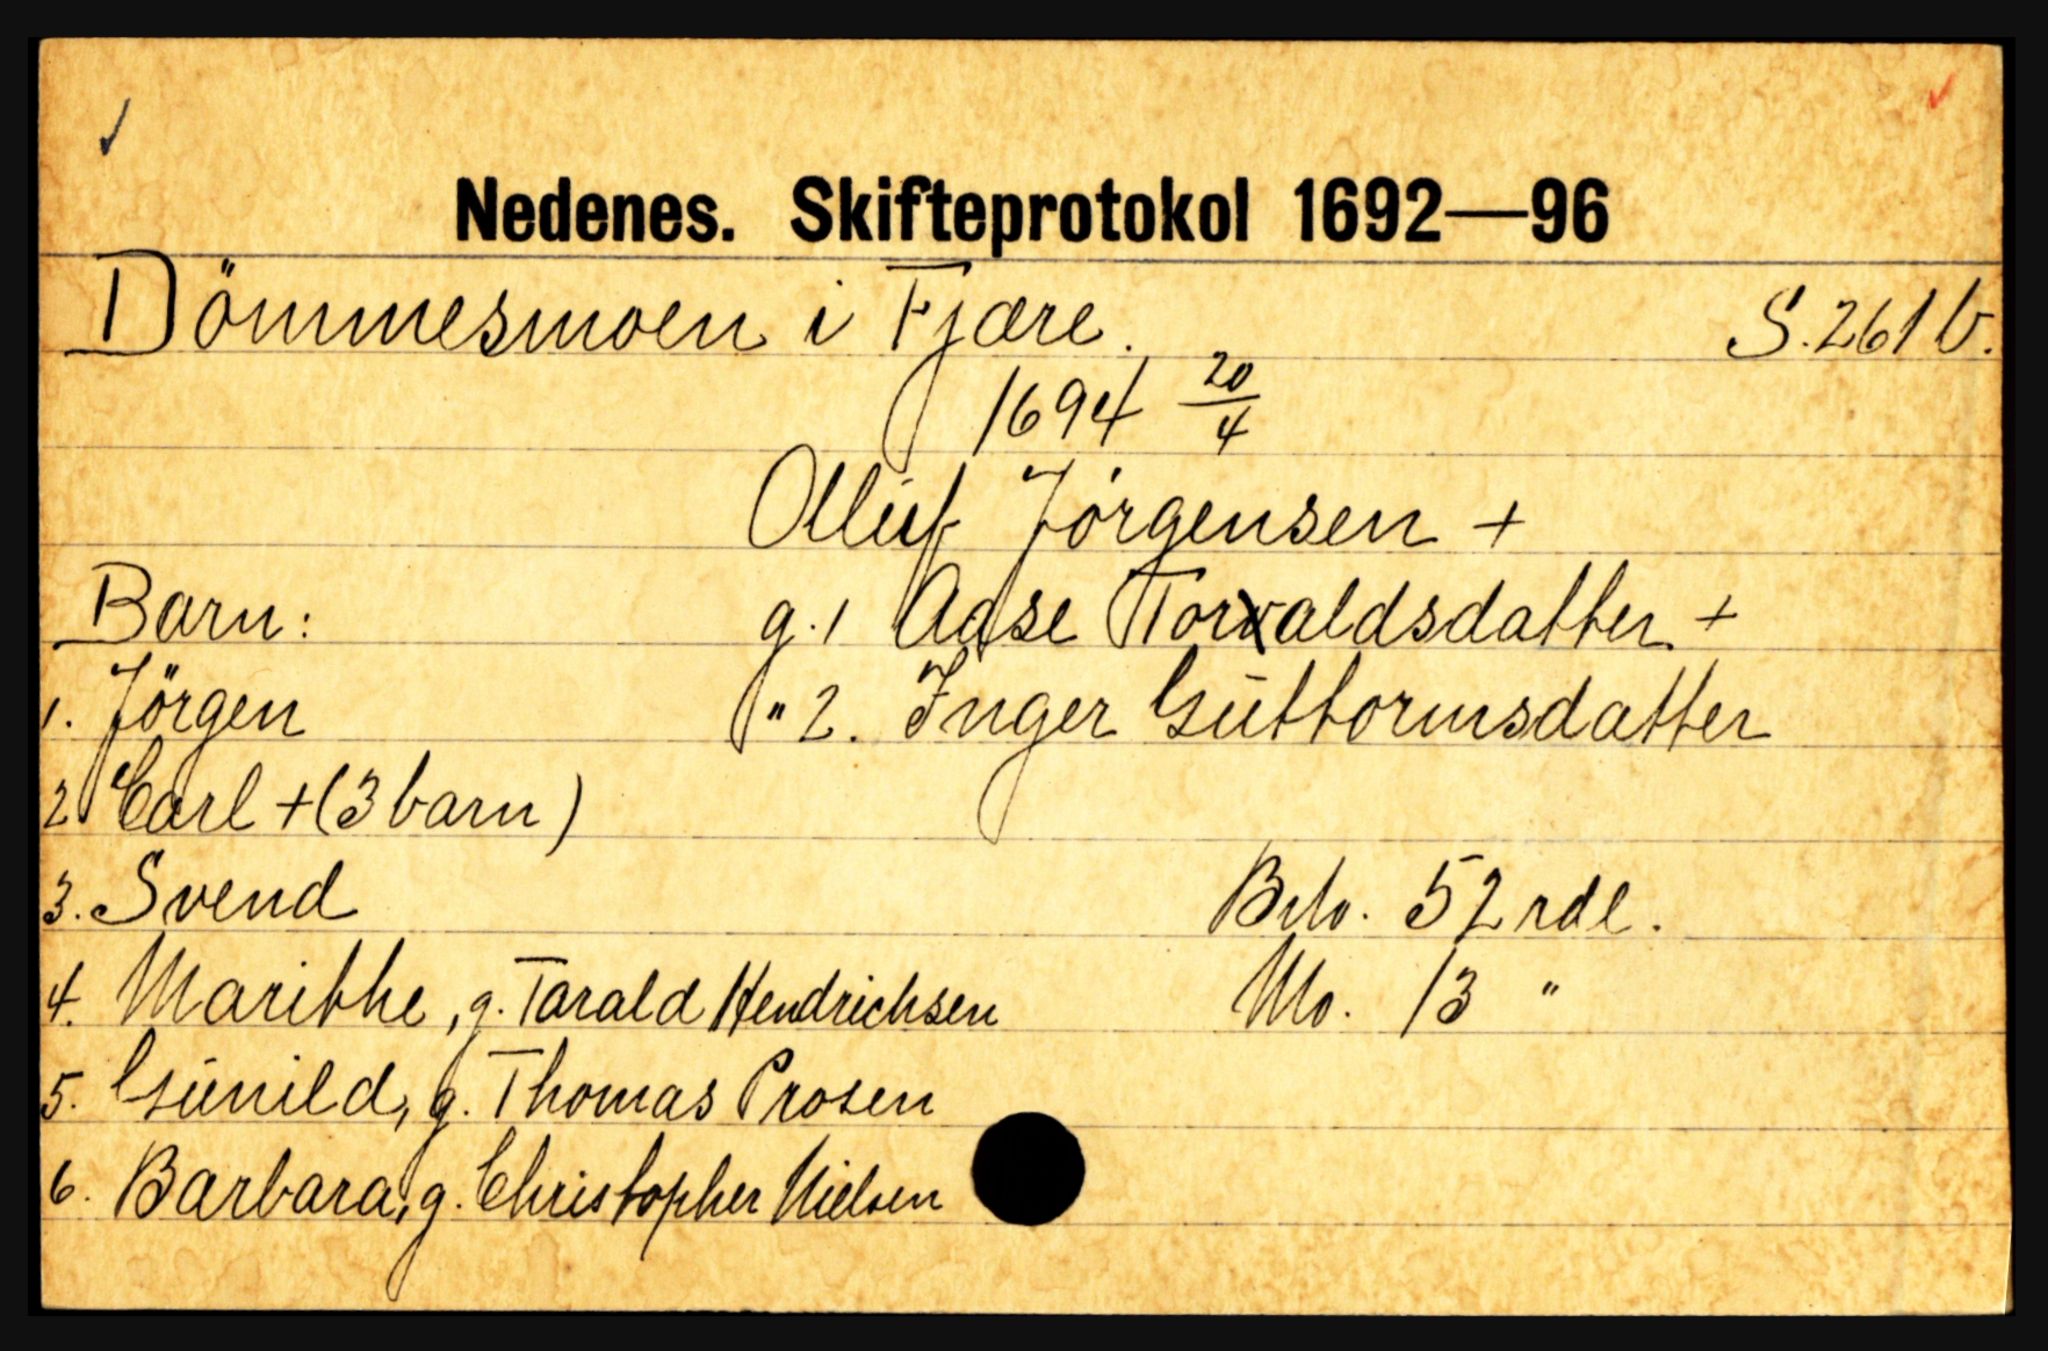 Nedenes. Skifteprotokol 1692—96
Dömmesmoen i Fjære. S. 261 b.
1694 20/4
Olluf Jörgensen +
Barn: g. 1 Aase Toraldsdatter +
1. Jörgen " 2. Inger Guttormsdatter
2 Carl + (3 barn)
3. Svend Brto. 52 rdl.
4. Marithe, g. Tarald Hendrichsen Nto. 13 "
5. Gunild, g. Thomas Prosen
6. Barbara, g. Christopher Nielsen